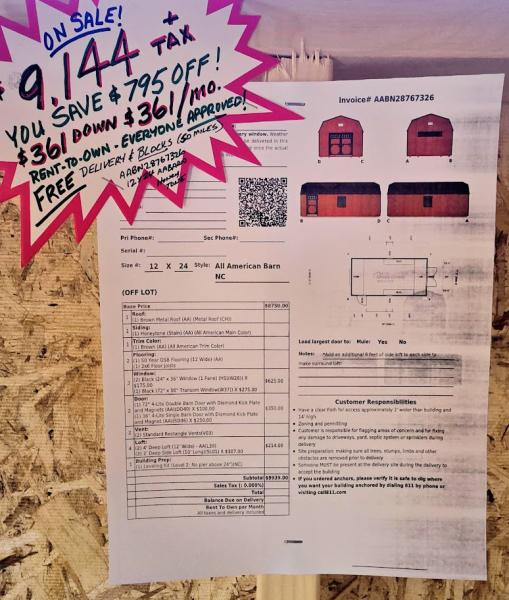 ON SALE!
$9,144 + TAX
YOU SAVE $795 OFF!
$361 DOWN $361/MO.
RENT-TO-OWN - EVERYONE APPROVED!
FREE DELIVERY & BLOCKS (50 MILES)
AABN28767326
Invoice# AABN28767326
D C
A B
B D C A
Pri Phone#: Sec Phone#:
Serial #:
Size #: 12 X 24 Style: All American Barn
NC
(OFF LOT)
Base Price $8750.00
Roof:
(1) Brown Metal Roof (AA) (Metal Roof (CH))
Siding:
(1) Honeytone (Stain) (AA) (All American Main Color)
Trim Color:
(1) Brown (AA) (All American Trim Color)
Flooring:
(1) 50 Year OSB Flooring (12 Wide) (AA)
(1) 2x6 Floor Joists
Window:
(2) Black (24" x 36" Window (1 Pane)
$175.00
(1) Black (72" x
Transom Window
$275.00
$625.00
Door:
(1) 72" 4-Lite Double Barn Door with Diamond Kick Plate
and Magnets
$100.00
(1) 36" 4-Lite Single Barn Door with Diamond Kick Plate
and Magnets
$250.00
$350.00
Vent:
(2) Standard Rectangle Vent
Loft:
(2) 4' Deep Loft (12' Wide)
Deep Side Loft
Building Prep:
(1) Leveling Kit
Subtotal $9939.00
Sales Tax ( 0.000%)
Total
Balance Due on Delivery
Rent To Own per Month
All taxes and delivery included
Load largest door to: Mule: Yes No
Notes:
Customer Responsibilities
• Have a clear path for access approximately 2' wider than building and
14' high
• Zoning and permitting
• Customer is responsible for flagging areas of concern and for fixing
any damage to driveways, yard, septic system or sprinklers during
delivery
• Site preparation, making sure all trees, stumps, limbs and other
obstacles are removed prior to delivery
• Someone MUST be present at the delivery site during the delivery to
accept the building
• If you ordered anchors, please verify it is safe to dig where
you want your building anchored by dialing 811 by phone or
visiting call811.com